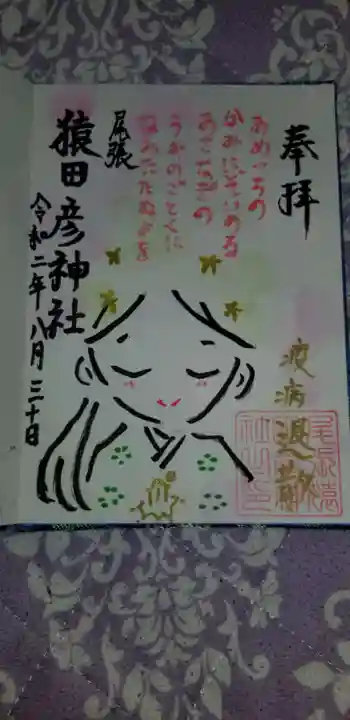 奉拝
疫病退散
あめつちの
かみにそいのる
あさなぎの
うみのごとくに
なみたたぬよを
尾張
猿田彦神社
令和二年八月三十日